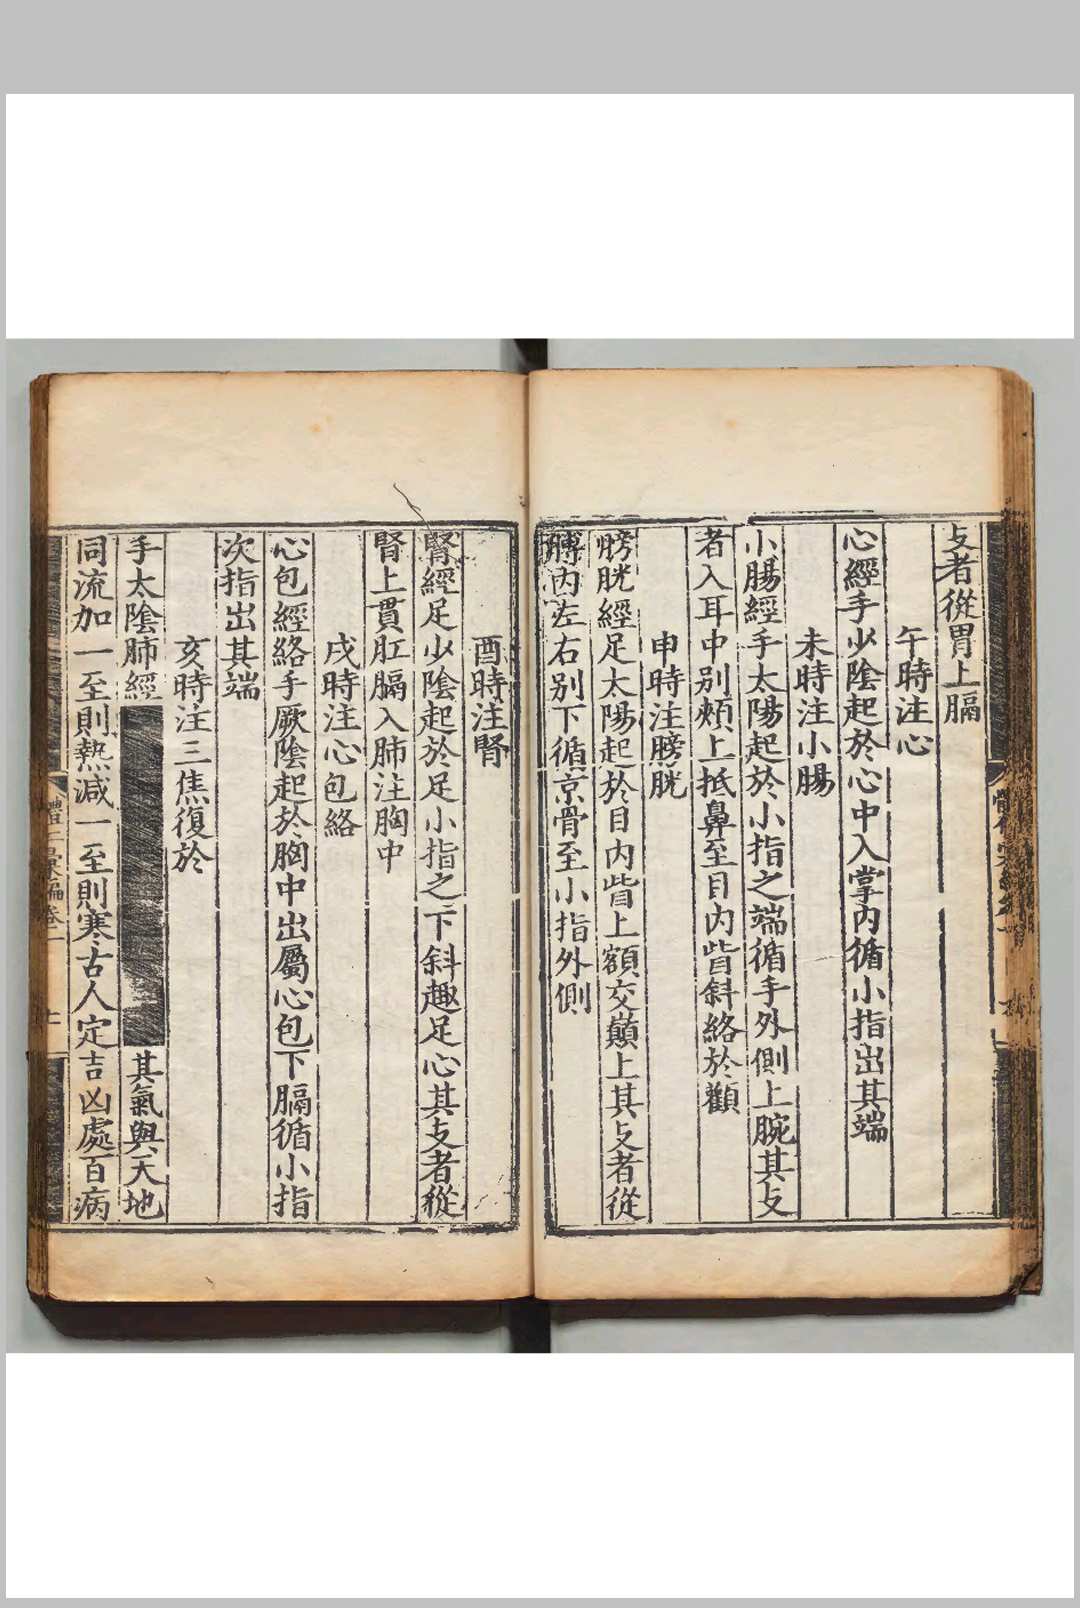 支者從胃上膈
午時注心
心經手少陰起於心中入掌內循小指出其端
未時注小腸
小腸經手太陽起於小指之端循手外側上腕其支
者入耳中別頰上抵鼻至目內眥斜絡於顴
申時注膀胱
膀胱經足太陽起於目內眥上額交巔上其支者從
膊內左右別下循京骨至小指外側
酉時注腎
腎經足少陰起於足小指之下斜趣足心其支者從
腎上貫肛膈入肺注胸中
戌時注心包絡
心包經絡手厥陰起於胸中出屬心包下膈循小指
次指出其端
亥時注三焦復於
手太陰肺經 其氣與天地
同流加一至則熱減一至則寒古人定吉凶處百病